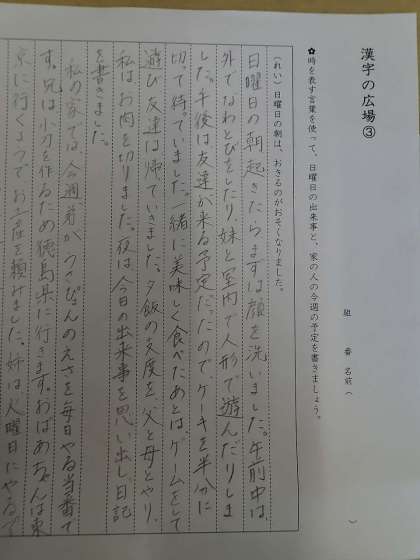 漢字の広場③
組 番 名前( )
✿時を表す言葉を使って、日曜日の出来事と、家の人の今週の予定を書きましょう。
(れい)日曜日の朝は、おきるのがおそくなりました。
日曜日の朝起きたらまずは顔を洗いました。午前中は、
外でなわとびをしたり、妹と室内で人形で遊んだりしま
した。午後は、友達が来る予定だったので、ケーキを半分に
切って待っていました。一緒に美味しく食べたあとは、ゲームをして
遊び友達は帰ていきました。夕飯の支度を、父と母とやり、
私はお肉を切りました。夜は今日の出来事を思い出し、日記
を書きました。
私の家では、今週弟がうさぴょんのえさを毎日やる当番で
す。兄は小刀を作るため徳島県に行きます。おばあちゃんは東
京に行くそうでお土産を頼みました。姉は火曜日にやるで